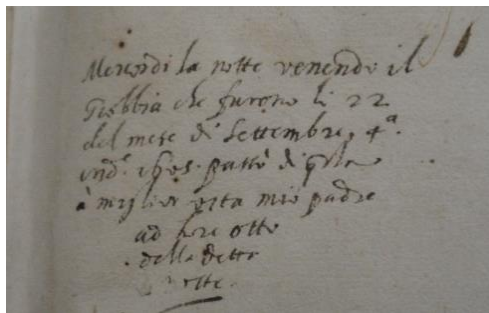 Mercordi la notte venendo il
Giobbia che furono li 22
del mese di Settembre, 4ª.
ind.e 1605. passò di q̃sta
à miglior vita mio padre
ad hore otto
della detta
notte.